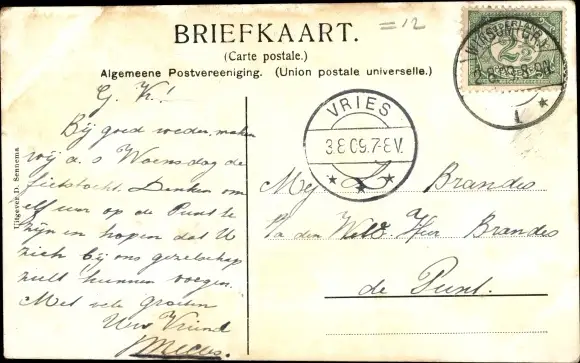 BRIEFKAART.
=12
(Carte postale.)
Algemeene Postvereeniging. (Union postale universelle.)
G. K!
Bij goed weder, maken
wij a.s Woensdag de
fietstocht. Denken om
elf uur op de Punt te
zijn en hopen dat U
zich bij ons gezelschap
zult kunnen voegen.
Met vele groeten
Uw Vriend
Uitgever D. Sennema
VRIES
3.8.09.7-8V.
2½
Mej Brandes
p/a den Weld. Heer Brandes
de Punt.